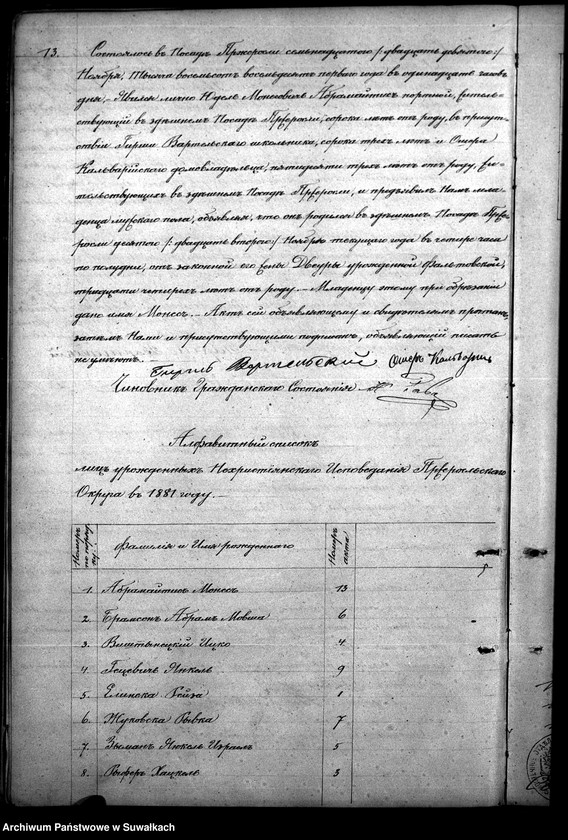 13. Состоялось въ Посадѣ Пржеросли семьнадцатого /: двадцать девятого :/
Ноября, тысяча восемьсотъ восемьдесятъ перваго года въ одинадцать часовъ
дня. Явился лично Юдель Монесовичъ Абрамайтисъ портной, житель-
ствующій въ здѣшнемъ Посадѣ Пржеросли, сорока лѣтъ отъ роду, въ присут-
ствіи Гирши Вартельскаго школьника, сорока трехъ лѣтъ и Ошера
Кальварійскаго домовладѣльца, пятидесяти трехъ лѣтъ отъ роду, жи-
тельствующихъ въ здѣшнемъ Посадѣ Пржеросли, и предъявилъ Намъ мла-
денца мужскаго пола, объявляя, что онъ родился въ здѣшнемъ Посадѣ Прже-
росли десятого /: двадцать второго :/ Ноября текущаго года въ четыре часа
по полудни, отъ законной его жены Двейры урожденной
тридцати четырехъ лѣтъ отъ роду. — Младенцу этому при обрѣзаніи
дано имя Монесъ. — Актъ сей объявляющему и свидѣтелямъ прочитанъ,
затѣмъ Нами и присутствующими подписанъ, объявляющій писать
не умѣетъ. —
Гиршъ Вартельский Ошеръ
Чиновникъ Гражданскаго Состоянія
Алфавитный списокъ
лицъ урожденныхъ Нехристіянскаго Исповеданія Пржерослскаго
Округа въ 1881 году. —
Номеръ по порядку
Фамилія и Имя рожденнаго
Номеръ акта
1. Абрамайтисъ Монесъ 13
2. Брамсонъ Абрамъ Мовша 6
3. Виштынецкій Ицко 4
4. Гецевичъ Янкель 9
5. Елинска Гейза 1
6. Жуковска Рывка 7
7. Зыманъ Янкель Израель 5
8. Хацкель 3
Archiwum Państwowe w Suwałkach